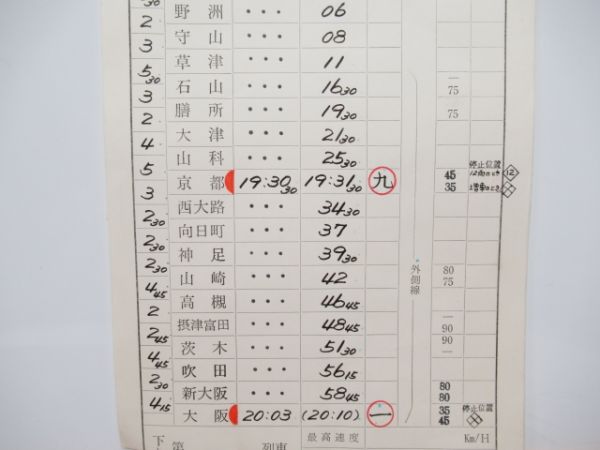 30
2 野洲 ・・・ 06
3 守山 ・・・ 08
5 30 草津 ・・・ 11
3 石山 ・・・ 16 30 — 75
2 膳所 ・・・ 19 30 75
4 大津 ・・・ 21 30
5 山科 ・・・ 25 30 停止位置
3 京都 19:30 30 19:31 30 九 45 35 12
2 30 西大路 ・・・ 34 30
2 30 向日町 ・・・ 37
2 30 神足 ・・・ 39 30
4 45 山崎 ・・・ 42 外側線 80 75
2 高槻 ・・・ 46 45
2 45 摂津富田 ・・・ 48 45 — 90
4 45 茨木 ・・・ 51 30 90 —
2 30 吹田 ・・・ 56 15
4 15 新大阪 ・・・ 58 45 80 80
大阪 20:03 (20:10) 一 35 45 停止位置
下 第 列車 最高速度 Km/H